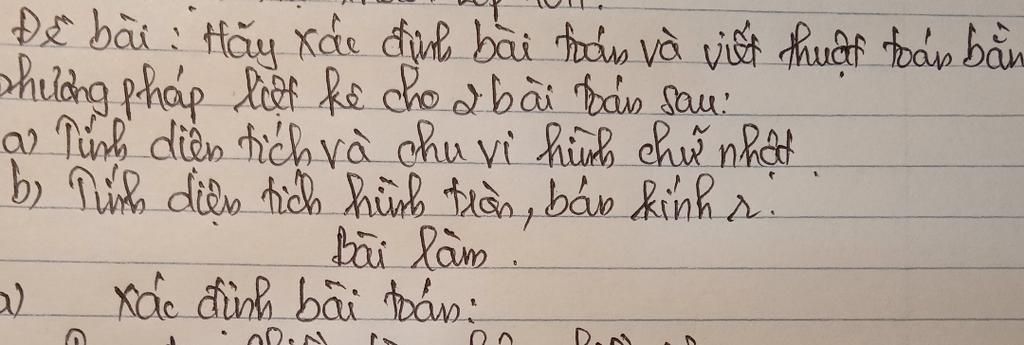 Đề bài: Hãy xác định bài toán và viết thuật toán bằn
phương pháp liệt kê cho 2 bài toán sau:
a) Tính diện tích và chu vi hình chữ nhật.
b) Tính diện tích hình tròn, bán kính r.
Bài làm.
a) xác định bài toán: